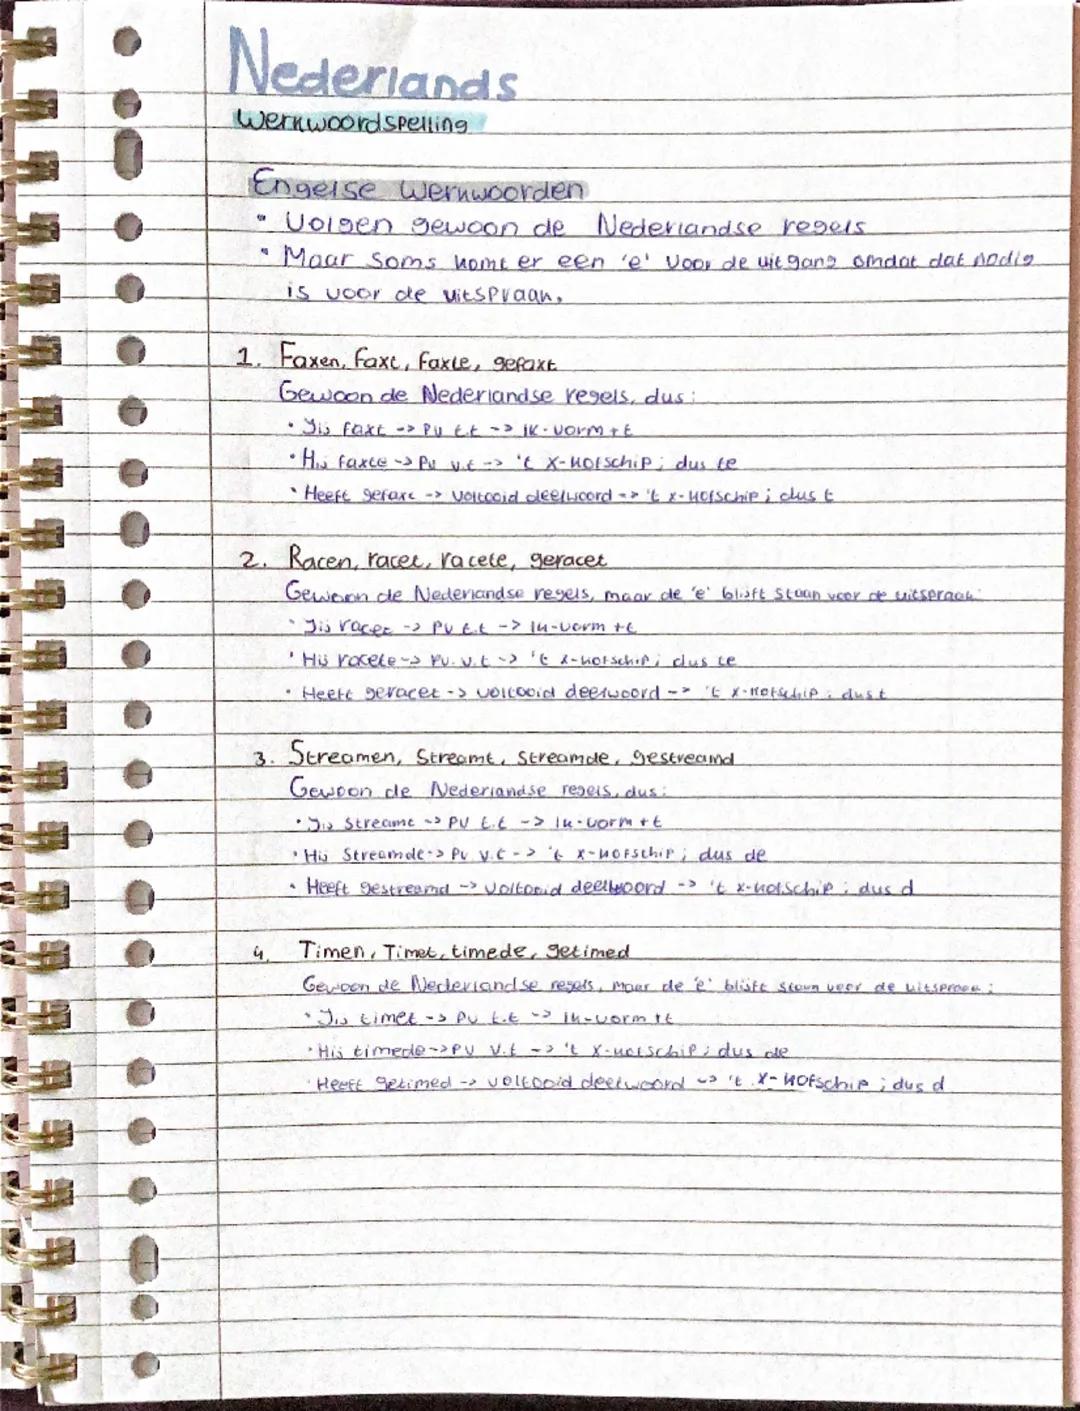 Nederlands
Werkwoordspelling
Engelse werkwoorden
• Volgen gewoon de Nederlandse regels
• Maar soms komt er een 'e' voor de uitgang omdat dat nodig
is voor de uitspraak.
1. Faxen, faxt, faxte, gefaxt
Gewoon de Nederlandse regels, dus:
• Jij faxt -> PV t.t -> ik-vorm+t
• Hij faxte -> PV v.t -> 't x-kofschip; dus te
• Heeft gefaxt -> voltooid deelwoord -> 't x-kofschip; dus t
2. Racen, racet, racete, geracet
Gewoon de Nederlandse regels, maar de 'e' blijft staan voor de uitspraak:
• Jij racet -> PV t.t -> ik-vorm +t
• Hij racete -> PV. v.t -> 't x-kofschip; dus te
• Heeft geracet -> voltooid deelwoord -> 't x-kofschip; dus t
3. Streamen, Streamt, streamde, gestreamd
Gewoon de Nederlandse regels, dus:
• Jij streamt -> PV t.t -> ik-vorm+t
• Hij streamde -> PV v.t -> 't x-kofschip; dus de
• Heeft gestreamd -> voltooid deelwoord -> 't x-kofschip; dus d
4. Timen, Timet, timede, getimed
Gewoon de Nederlandse regels, maar de 'e' blijft staan voor de uitspraak:
• Jij timet -> PV t.t -> ik-vorm +t
• Hij timede -> PV v.t -> 't x-kofschip; dus de
• Heeft getimed -> voltooid deelwoord -> 't x-kofschip; dus d